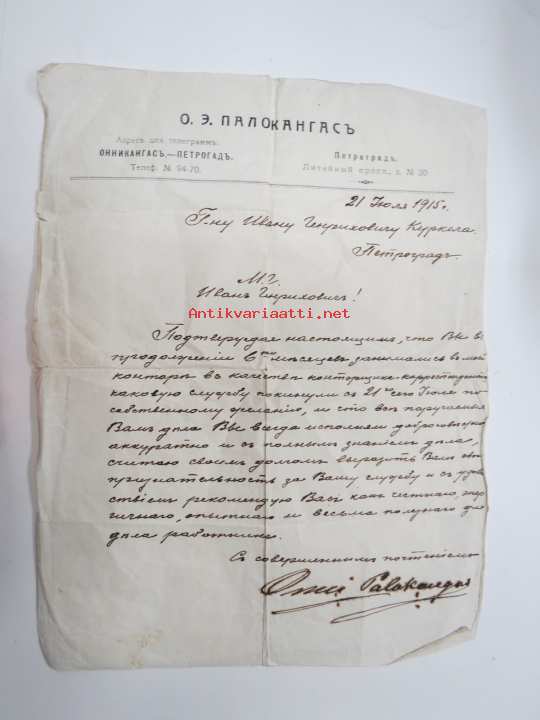 О. Э. ПАЛОКАНГАСЪ
Адресъ для телеграммъ:
ОННИКАНГАСЪ.—ПЕТРОГАДЪ.
Телеф. № 94-70.
Петроградъ.
Литейный просп., д. № 30
21 Іюля 1915 г.
Г-ну Ивану Генриховичу Куркела.
Петроградъ
М. Г.
Иванъ Генриховичъ!
Antikvariaatti.net
Подтверждая настоящимъ, что Вы въ
продолженіи 6ти мѣсяцевъ занимались въ моей
конторѣ въ качествѣ конторщика-корреспондента
каковую службу покинули съ 21го сего Іюля по
собственному желанію, и что всѣ поручаемыя
Вамъ дѣла Вы всегда исполняли добросовѣстно
аккуратно и съ полнымъ знаніемъ дѣла,
считаю своимъ долгомъ выразить Вамъ свою
признательность за Вашу службу и съ удоволь
ствіемъ рекомендую Васъ какъ честнаго, энер
гичнаго, опытнаго и весьма полезнаго для
дѣла работника.
Съ совершеннымъ почтеніемъ
Onni Palokangas